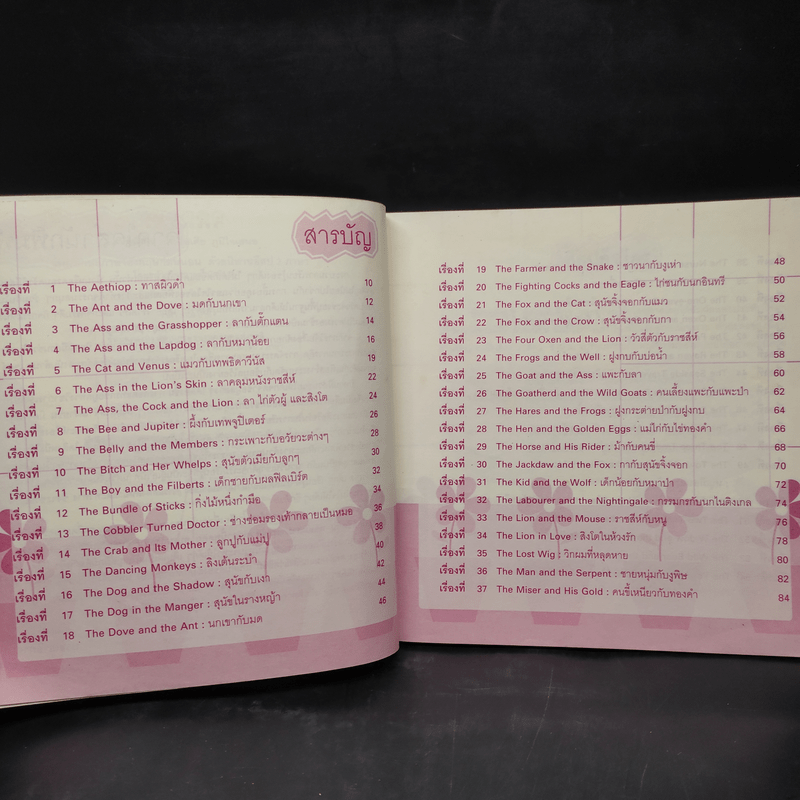 สารบัญ
เรื่องที่ 1 The Aethiop : ทาสผิวดำ 10
เรื่องที่ 2 The Ant and the Dove : มดกับนกเขา 12
เรื่องที่ 3 The Ass and the Grasshopper : ลากับตั๊กแตน 14
เรื่องที่ 4 The Ass and the Lapdog : ลากับหมาน้อย 16
เรื่องที่ 5 The Cat and Venus : แมวกับเทพธิดาวีนัส 19
เรื่องที่ 6 The Ass in the Lion's Skin : ลาคลุมหนังราชสีห์ 22
เรื่องที่ 7 The Ass, the Cock and the Lion : ลา ไก่ตัวผู้ และสิงโต 24
เรื่องที่ 8 The Bee and Jupiter : ผึ้งกับเทพจูปิเตอร์ 26
เรื่องที่ 9 The Belly and the Members : กระเพาะกับอวัยวะต่างๆ 28
เรื่องที่ 10 The Bitch and Her Whelps : สุนัขตัวเมียกับลูกๆ 30
เรื่องที่ 11 The Boy and the Filberts : เด็กชายกับผลฟิลเบิร์ต 32
เรื่องที่ 12 The Bundle of Sticks : กิ่งไม้หนึ่งกำมือ 34
เรื่องที่ 13 The Cobbler Turned Doctor : ช่างซ่อมรองเท้ากลายเป็นหมอ 36
เรื่องที่ 14 The Crab and Its Mother : ลูกปูกับแม่ปู 38
เรื่องที่ 15 The Dancing Monkeys : ลิงเต้นระบำ 40
เรื่องที่ 16 The Dog and the Shadow : สุนัขกับเงา 42
เรื่องที่ 17 The Dog in the Manger : สุนัขในรางหญ้า 44
เรื่องที่ 18 The Dove and the Ant : นกเขากับมด 46
เรื่องที่ 19 The Farmer and the Snake : ชาวนากับงูเห่า 48
เรื่องที่ 20 The Fighting Cocks and the Eagle : ไก่ชนกับนกอินทรี 50
เรื่องที่ 21 The Fox and the Cat : สุนัขจิ้งจอกกับแมว 52
เรื่องที่ 22 The Fox and the Crow : สุนัขจิ้งจอกกับกา 54
เรื่องที่ 23 The Four Oxen and the Lion : วัวสี่ตัวกับราชสีห์ 56
เรื่องที่ 24 The Frogs and the Well : ฝูงกบกับบ่อน้ำ 58
เรื่องที่ 25 The Goat and the Ass : แพะกับลา 60
เรื่องที่ 26 The Goatherd and the Wild Goats : คนเลี้ยงแพะกับแพะป่า 62
เรื่องที่ 27 The Hares and the Frogs : ฝูงกระต่ายป่ากับฝูงกบ 64
เรื่องที่ 28 The Hen and the Golden Eggs : แม่ไก่กับไข่ทองคำ 66
เรื่องที่ 29 The Horse and His Rider : ม้ากับคนขี่ 68
เรื่องที่ 30 The Jackdaw and the Fox : กากับสุนัขจิ้งจอก 70
เรื่องที่ 31 The Kid and the Wolf : เด็กน้อยกับหมาป่า 72
เรื่องที่ 32 The Labourer and the Nightingale : กรรมกรกับนกไนติงเกล 74
เรื่องที่ 33 The Lion and the Mouse : ราชสีห์กับหนู 76
เรื่องที่ 34 The Lion in Love : สิงโตในห้วงรัก 78
เรื่องที่ 35 The Lost Wig : วิกผมที่หลุดหาย 80
เรื่องที่ 36 The Man and the Serpent : ชายหนุ่มกับงูพิษ 82
เรื่องที่ 37 The Miser and His Gold : คนขี้เหนียวกับทองคำ 84